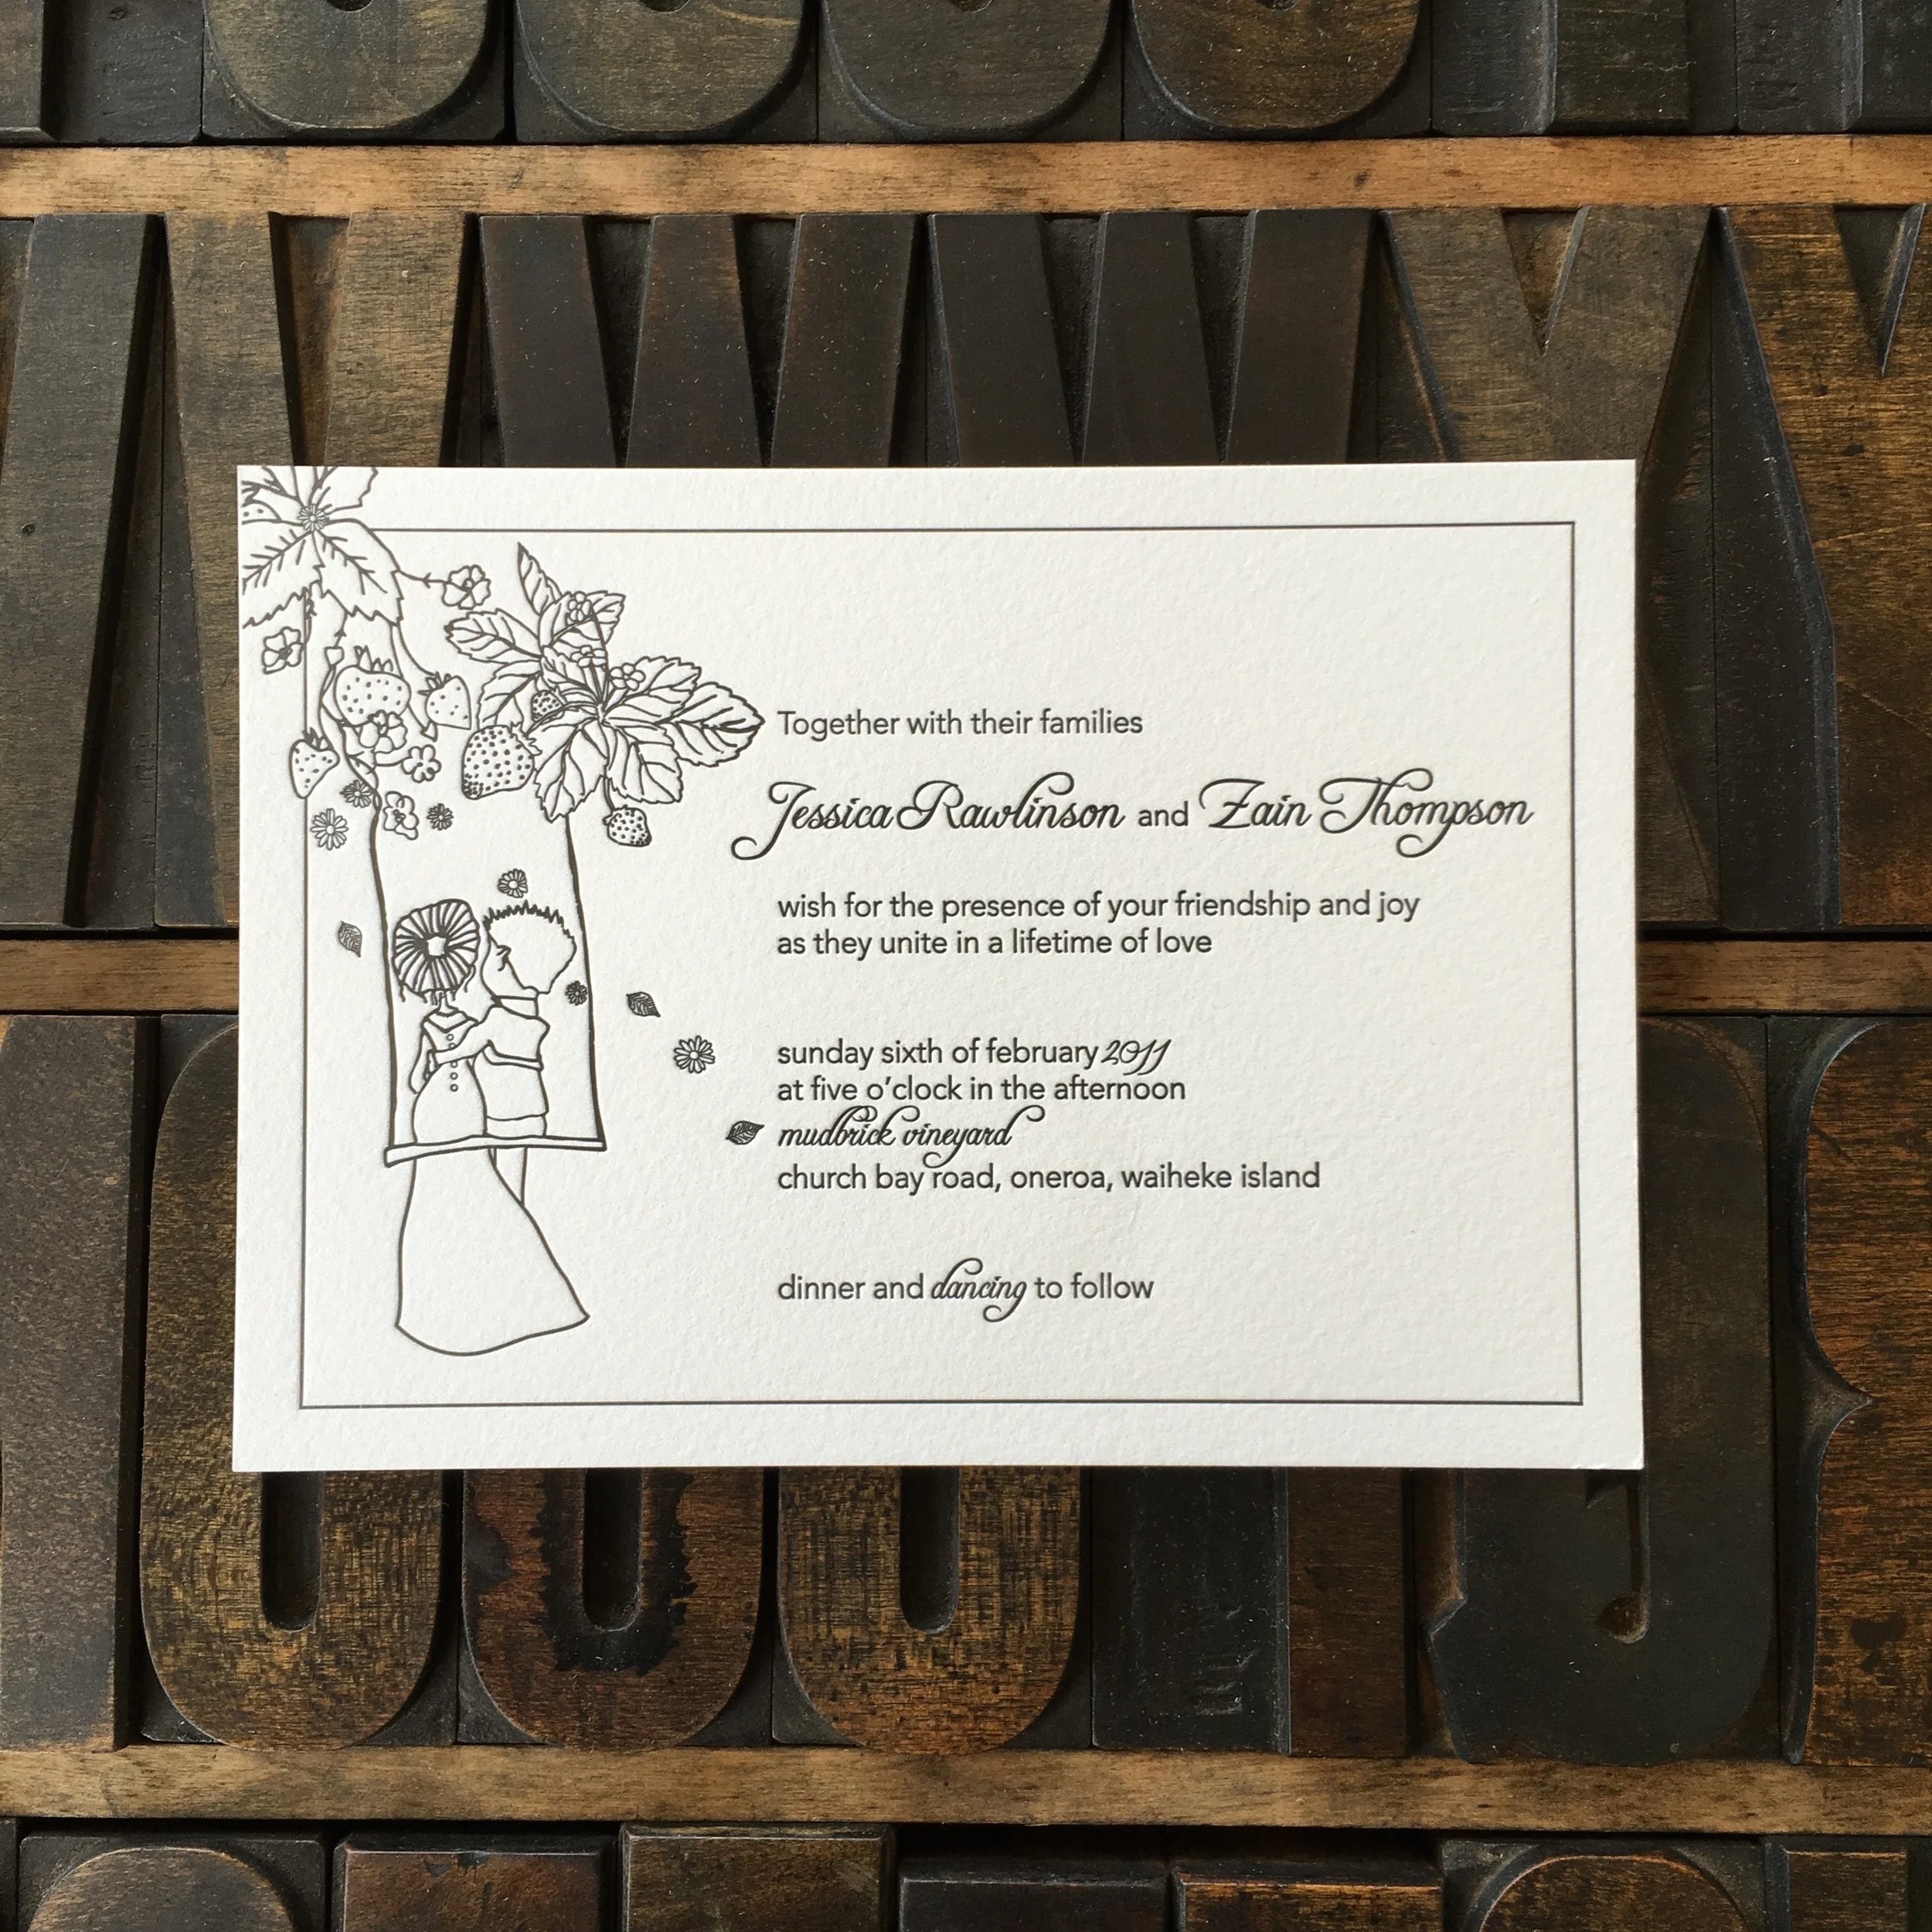 Together with their families
Jessica Rawlinson and Zain Thompson
wish for the presence of your friendship and joy
as they unite in a lifetime of love
sunday sixth of february 2011
at five o'clock in the afternoon
mudbrick vineyard
church bay road, oneroa, waiheke island
dinner and dancing to follow